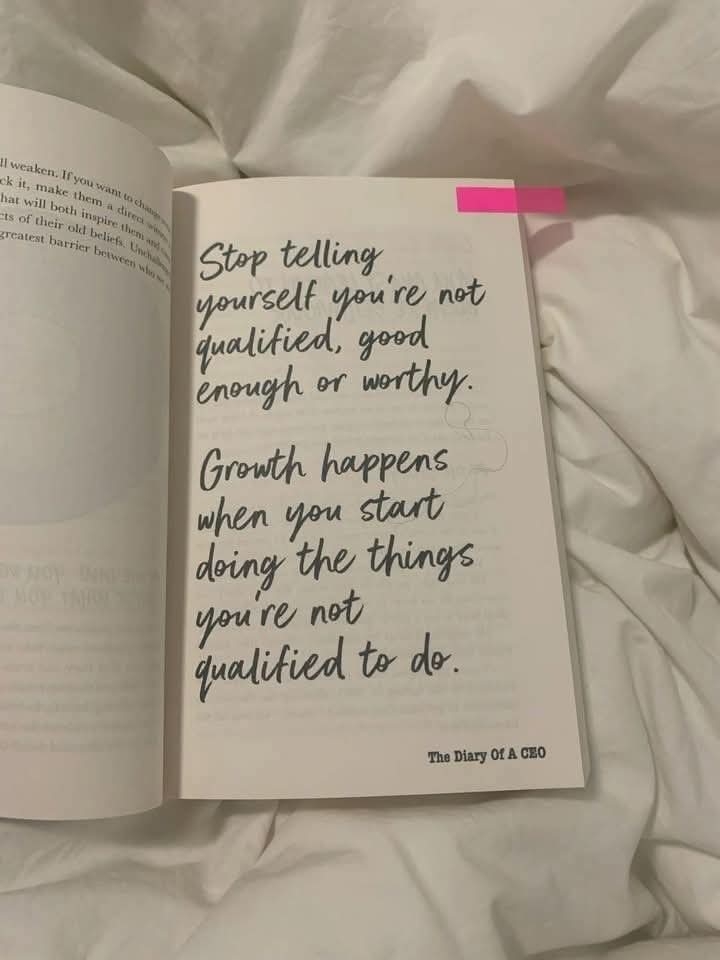 ll weaken. If you want to
ck it, make them a direct
hat will both inspire them and
cts of their old beliefs.
greatest barrier between who
Stop telling
yourself you're not
qualified, good
enough or worthy.
Growth happens
when you start
doing the things
you're not
qualified to do.
The Diary Of A CEO